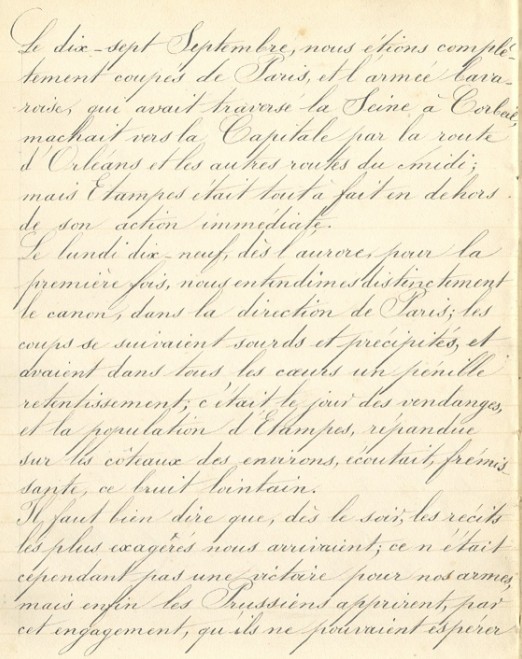 Le dix-sept Septembre, nous étions complé-
tement coupés de Paris, et l'armée bava-
roise, qui avait traversé la Seine à Corbeil,
machait vers la Capitale par la route
d'Orléans et les autres routes du midi;
mais Etampes était tout à fait en dehors
de son action immédiate.
Le lundi dix-neuf, dès l'aurore, pour la
première fois, nous entendîmes distinctement
le canon, dans la direction de Paris; les
coups se suivaient sourds et précipités, et
avaient dans tous les cœurs un pénible
retentissement; c'était le jour des vendanges,
et la population d'Etampes, répandue
sur les côteaux des environs, écoutait, frémis
sante, ce bruit lointain.
Il faut bien dire que, dès le soir, les récits
les plus exagérés nous arrivaient; ce n'était
cependant pas une victoire pour nos armes,
mais enfin les Prussiens apprirent, par
cet engagement, qu'ils ne pouvaient espérer